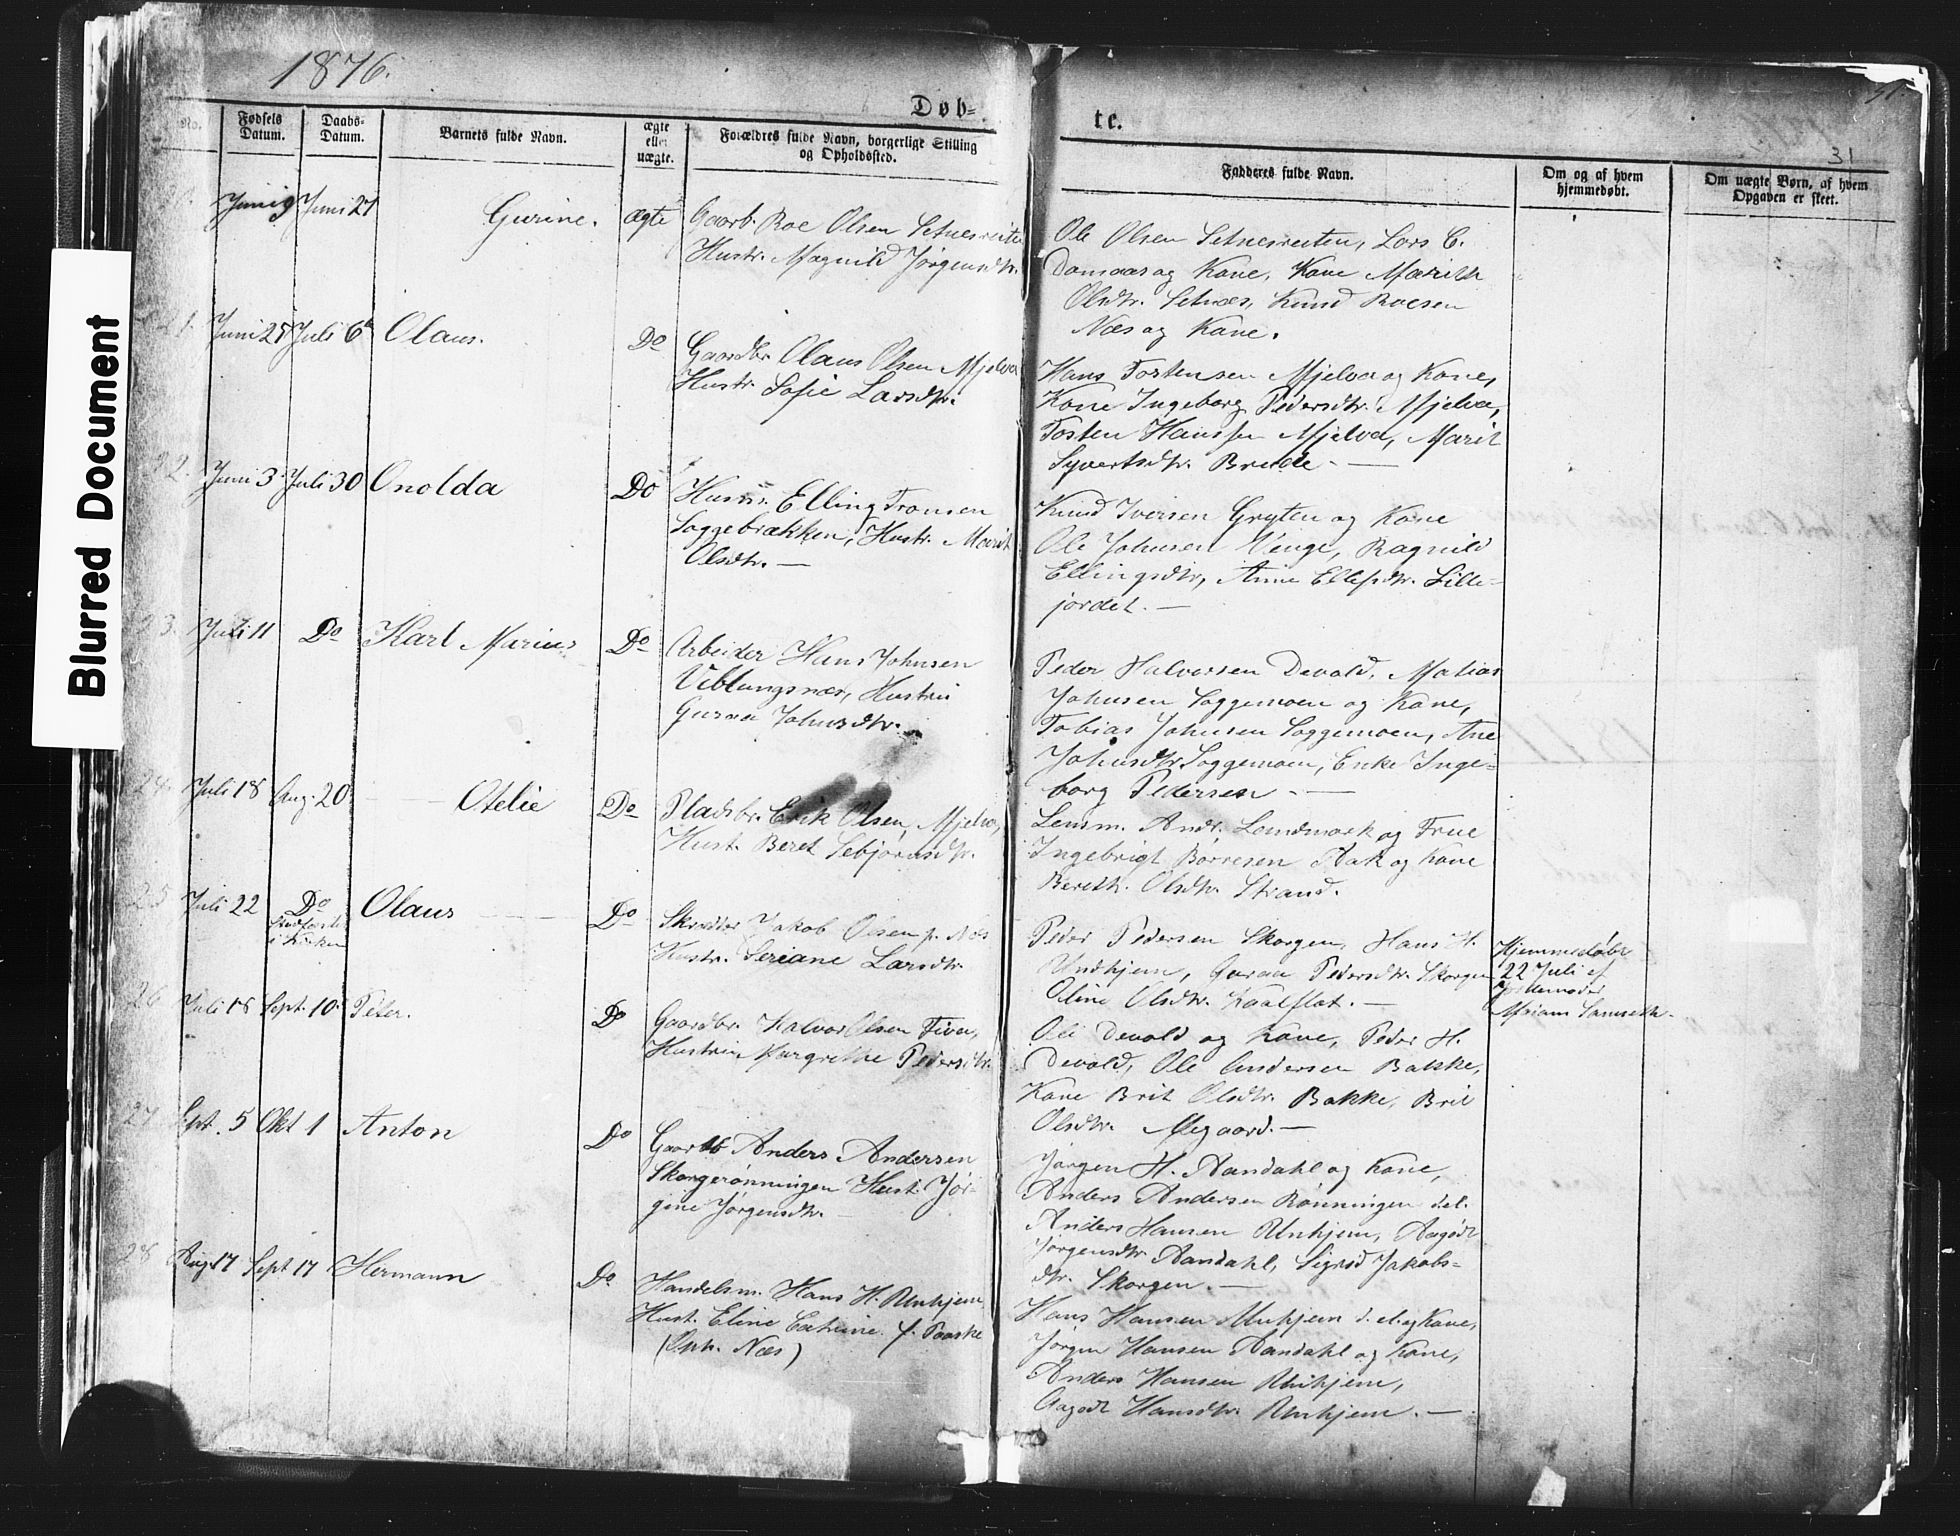 1876.
Døb=
te.
31
No.
Fødsels Datum.
Daabs-Datum.
Barnets fulde Navn.
ægte eller uægte.
Forældres fulde Navn, borgerlige Stilling og Opholdssted.
Fadderes fulde Navn.
Om og af hvem hjemmedøbt.
Om uægte Børn, af hvem Opgaven er skeet.
Blurred Document
Juni 9 Juni 27 Gurine. ægte
Gaarb. Roe Olsen Setnesreiten
Hustr. Magnild Jørgensdtr.
Ole Olsen Setnesreiten, Lars C.
Damaas og Kone, Kone Marith
Olsdtr. Setnæs, Knud Roesen
Næs og Kone.
21. Juni 28 Juli 6 Olaus. Do
Gaardbr. Olaus Olsen Mjelva
Hustr. Sofie Larsdtr.
Hans Tostensen Mjelva og Kone,
Kone Ingeborg Pedersdtr. Mjelva,
Tosten Hanssen Mjelva, Marit
Syvertsdtr. Breide. —
22. Juni 3 Juli 30 Onolda Do
Husm. Elling Tronsen
Soggebrækken, Hustr. Marit
Olsdtr. —
Knud Iversen Gryten og Kone
Ole Johnsen Venge, Ragnild
Ellingsdtr, Anne Ellefsdtr. Lille-
jordet. —
23. Juli 11 Do Karl Marius Do
Arbeider Hans Johnsen
Veblungsnæs, Hustru
Guraa Johnsdtr.
Peder Halvorsen Devold, Matias
Johnsen Soggemoen og Kone,
Tobias Johnsen Soggemoen, Ane
Johnsdtr Soggemoen, Enke Inge-
borg Pedersen. —
24. Juli 18 Aug. 20 Otelie Do
Pladsbr. Erik Olsen, Mjelva,
Hust. Beret Sebjørnsdtr.
Lensm. Andr. Landmark og Frue
Ingebrigt Børresen Aak og Kone
Bereth. Olsdtr. Strand.
25 Juli 22 Do Olaus Do
Stadfæstet
i Kirken
Skrædder Jakob Olsen p. Næs
Hustr. Seriane Larsdtr.
Peder Pedersen Skorgen, Hans H.
Unhjem, Guraa Pedersdtr. Skorgen
Oline Olsdtr. Kaalflot. —
Hjemmedøbt
22 Juli af
Jordemoder
Miriam Samseth.
26 Juli 18 Sept. 10. Peter. Do
Gaardbr. Halvor Olsen Fiva,
Hustru Margrethe Pedersdtr.
Ole Devold og Kone, Peder H.
Devold, Ole Andersen Bakke,
Kone Brit Olsdtr. Bakke, Brit
Olsdtr. Øegaard. —
27 Sept. 5 Okt 1 Anton Do
Gaarb Anders Andersen
Skorgerønningen Hust. Jør-
gine Jørgensdtr.
Jørgen H. Aandahl og Kone,
Anders Andersen Rønningen d.el.
Anders Hansen Unhjem, Aagodt
Jørgensdtr. Aandahl, Sigrid Jakobs-
dtr. Skorgen. —
28 Aug. 17 Sept 17 Hermann Do
Handelsm. Hans H. Unhjem
Hust. Eline Catrine f. Paaske
(Oph. Næs)
Hans Hansen Unhjem d. el. og Kone,
Jørgen Hansen Aandahl og Kone,
Anders Hansen Unhjem,
Aagodt Hansdtr. Unhjem. —